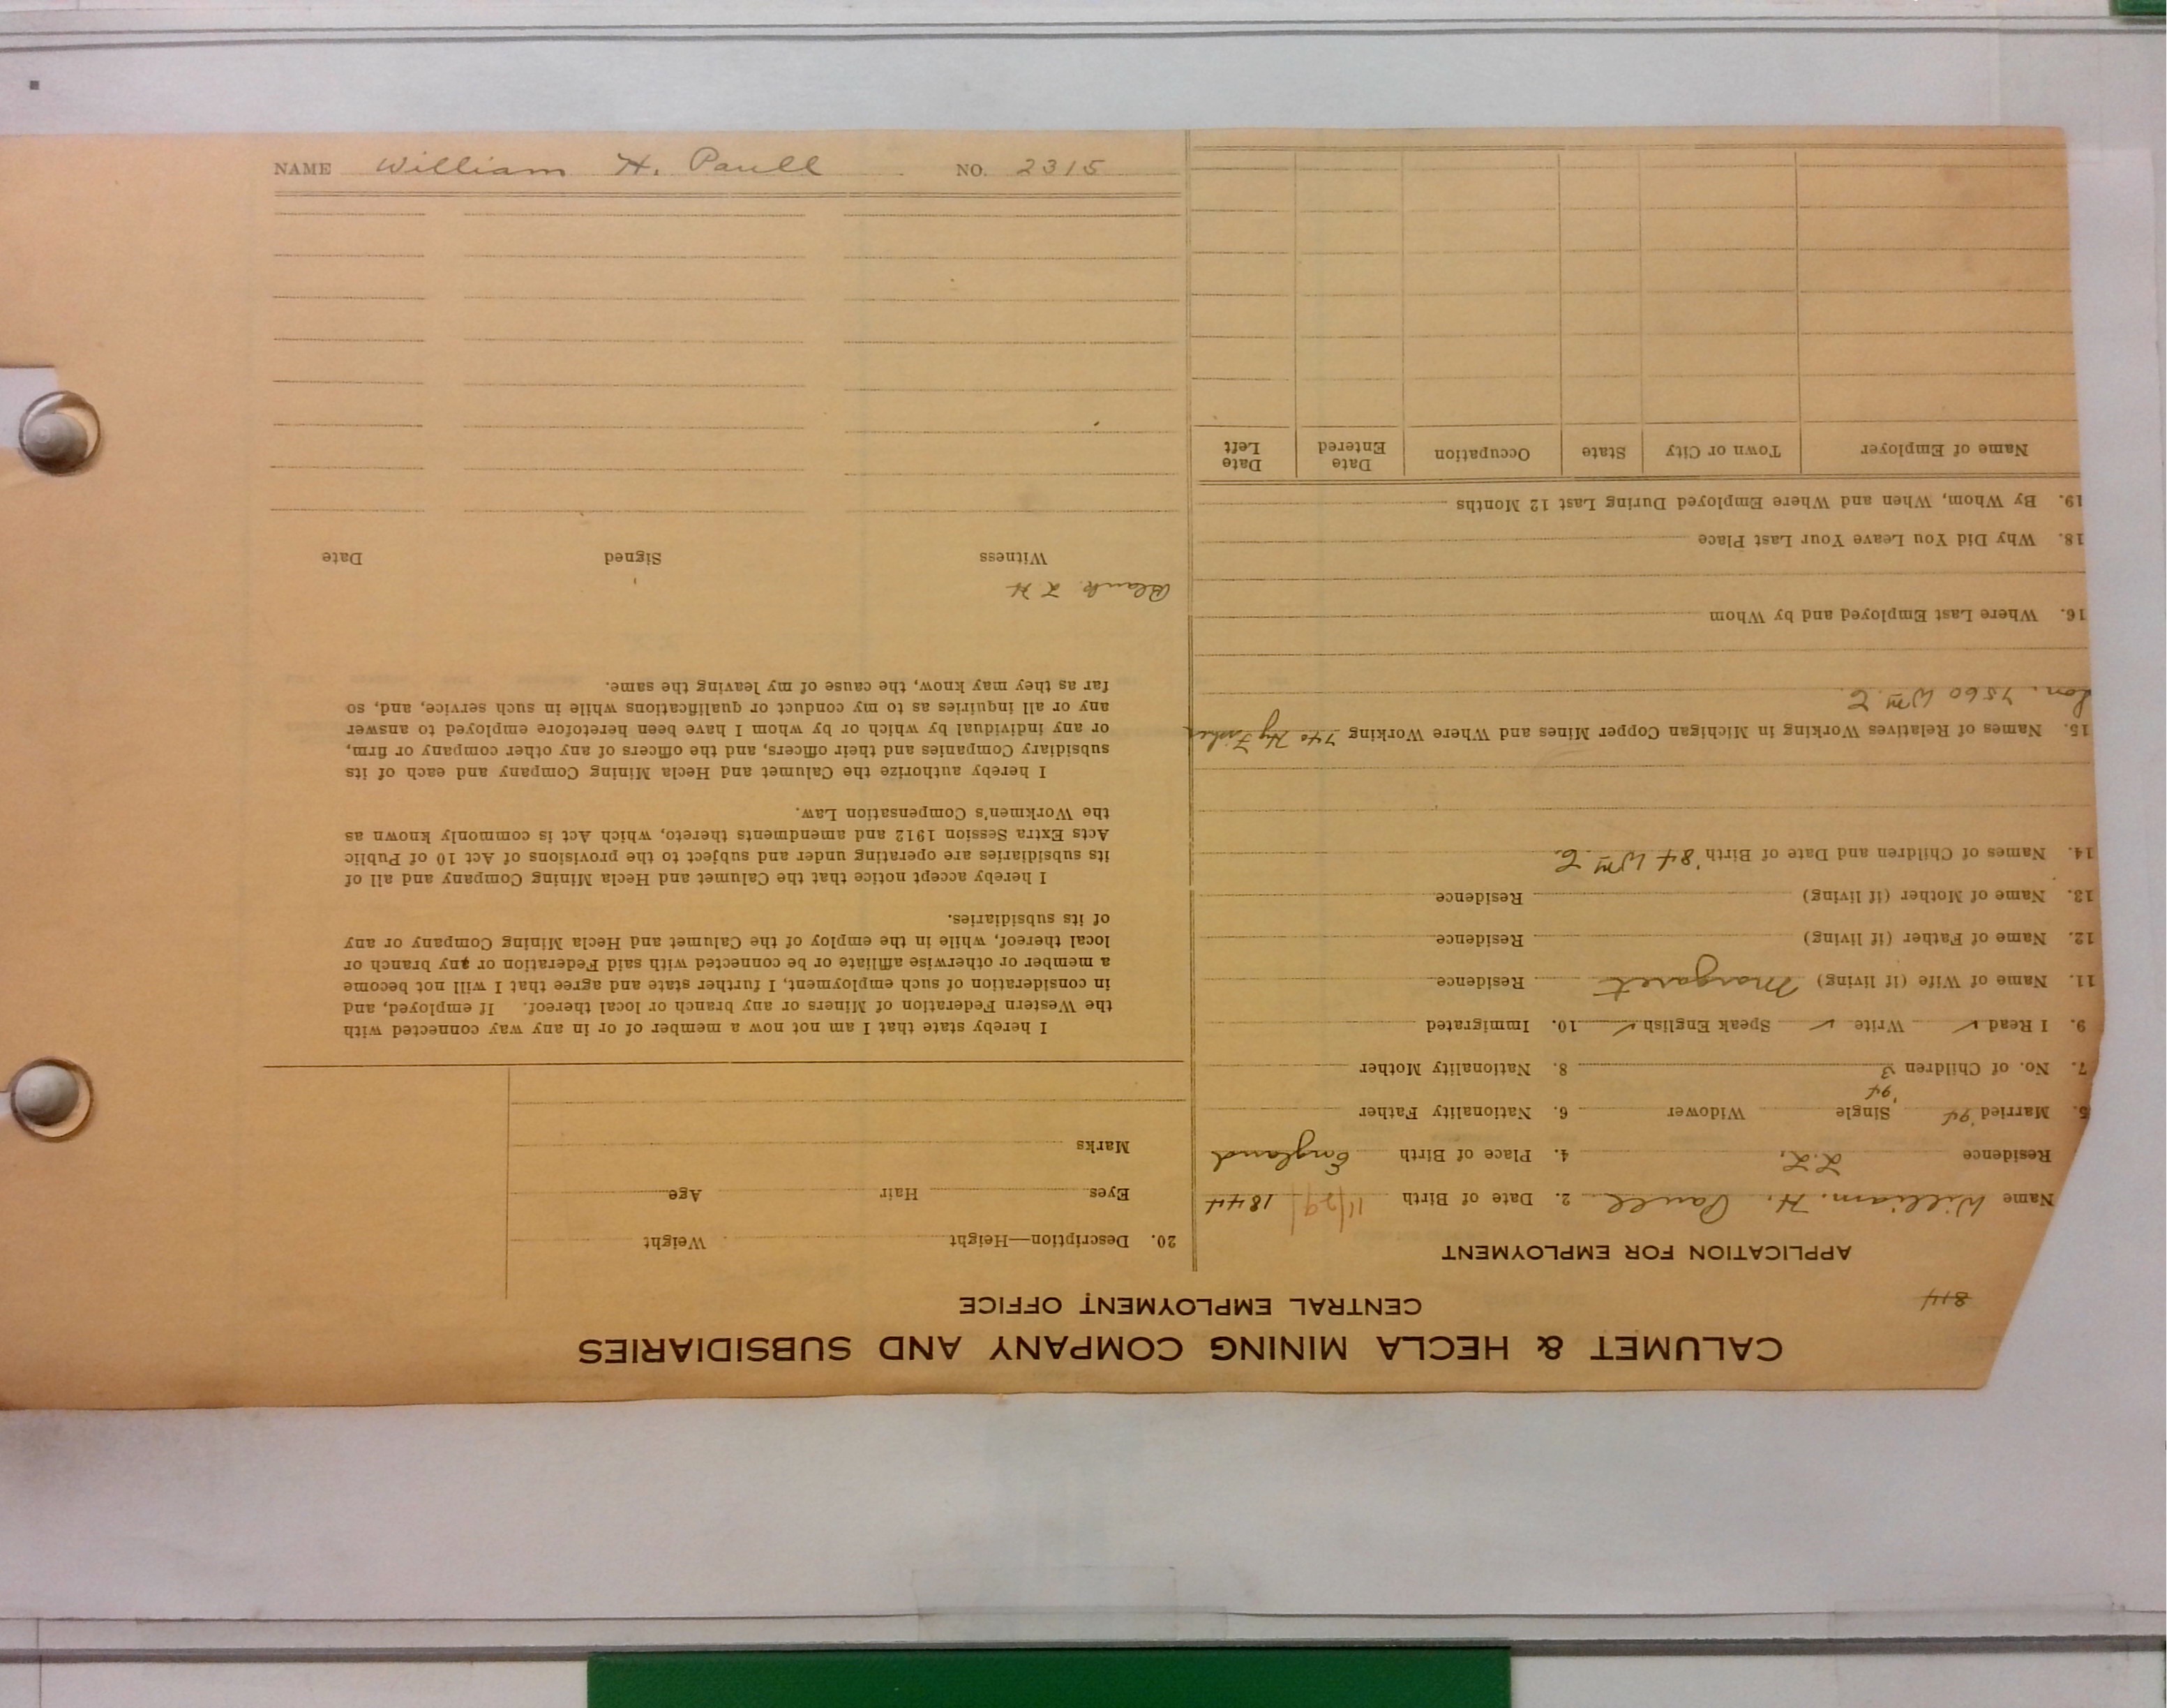 CALUMET & HECLA MINING COMPANY AND SUBSIDIARIES
CENTRAL EMPLOYMENT OFFICE
814
APPLICATION FOR EMPLOYMENT
Name William. H. Paull 2. Date of Birth 11/29/1844
Residence L.L. 4. Place of Birth England
5. Married '94 Single Widower 6. Nationality Father
'94
7. No. of Children 3 8. Nationality Mother
9. I Read ✓ Write ✓ Speak English ✓ 10. Immigrated
11. Name of Wife (if living) Margaret Residence
12. Name of Father (if living) Residence
13. Name of Mother (if living) Residence
14. Names of Children and Date of Birth '84 Wm E.
15. Names of Relatives Working in Michigan Copper Mines and Where Working 740 Hy Fisher
Son. 7560 Wm E.
16. Where Last Employed and by Whom
18. Why Did You Leave Your Last Place
19. By Whom, When and Where Employed During Last 12 Months
Name of Employer Town or City State Occupation Date Entered Date Left
20. Description—Height Weight
Eyes Hair Age
Marks
I hereby state that I am not now a member of or in any way connected with
the Western Federation of Miners or any branch or local thereof. If employed, and
in consideration of such employment, I further state and agree that I will not become
a member or otherwise affiliate or be connected with said Federation or any branch or
local thereof, while in the employ of the Calumet and Hecla Mining Company or any
of its subsidiaries.
I hereby accept notice that the Calumet and Hecla Mining Company and all of
its subsidiaries are operating under and subject to the provisions of Act 10 of Public
Acts Extra Session 1912 and amendments thereto, which Act is commonly known as
the Workmen's Compensation Law.
I hereby authorize the Calumet and Hecla Mining Company and each of its
subsidiary Companies and their officers, and the officers of any other company or firm,
or any individual by which or by whom I have been heretofore employed to answer
any or all inquiries as to my conduct or qualifications while in such service, and, so
far as they may know, the cause of my leaving the same.
Blank L H
Witness Signed Date
NAME William H. Paull NO. 2315